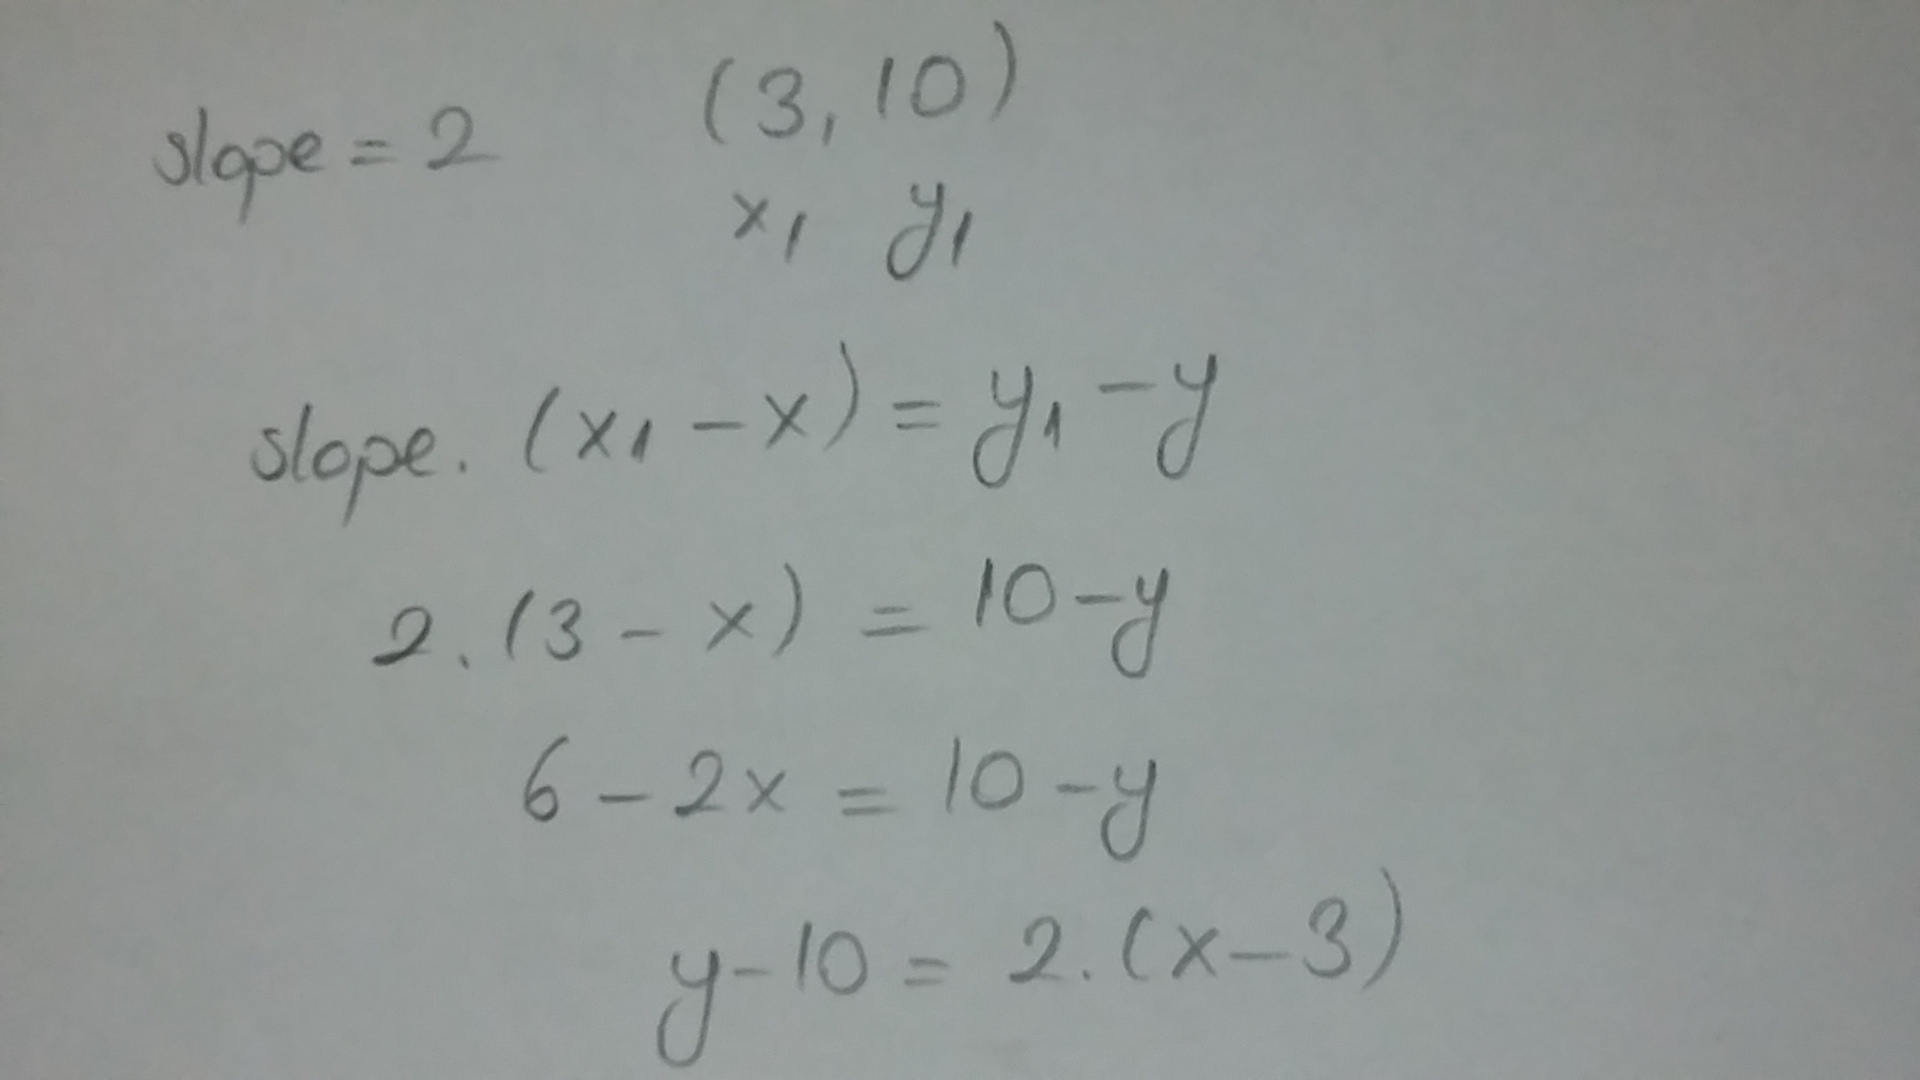 slope = 2 (3, 10)
x₁ y₁
slope. (x₁ - x) = y₁ - y
2. (3 - x) = 10 - y
6 - 2x = 10 - y
y - 10 = 2. (x - 3)